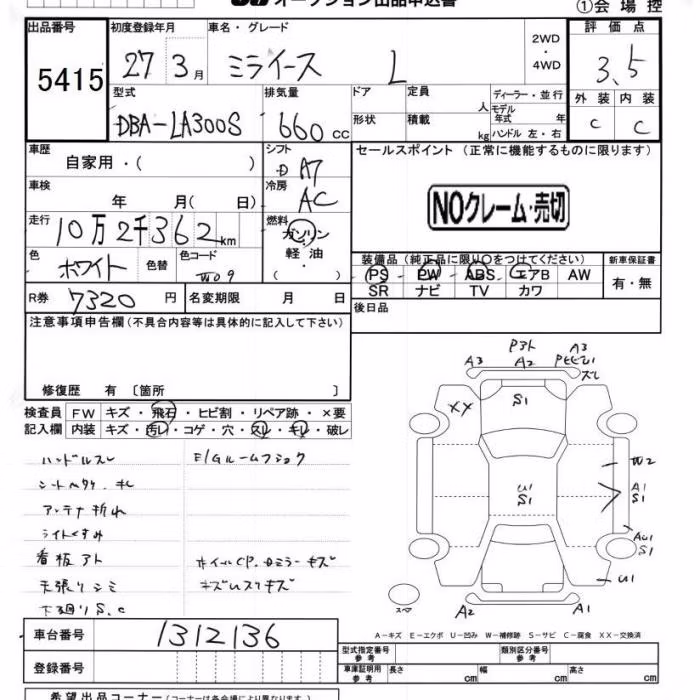 オークション出品申込書
①会場控
出品番号 初度登録年月 車名・グレード 評価点
5415 27年3月 ミライース L 2WD・4WD 3.5
型式 排気量 ドア 定員 人 ディーラー・並行 外装 内装
DBA-LA300S 660cc 形状 積載 kg モデル年式 年 ハンドル 左・右 C C
車歴 自家用・( ) シフト D A7 セールスポイント (正常に機能するものに限ります)
車検 年 月( 日) 冷房 AC
NOクレーム・売切
走行 10万2千362km 燃料 ガソリン・軽油・( )
色 ホワイト 色替 色コード W09
装備品 (純正品に限り○をつけてください) 新車保証書
PS PW ABS エアB AW 有・無
SR ナビ TV カワ
R券 7320円 名変期限 月 日
後日品
注意事項申告欄 (不具合内容等は具体的に記入して下さい)
修復歴 有 〔箇所 〕
検査員記入欄 FW キズ・飛石・ヒビ割・リペア跡・×要
内装 キズ・汚レ・コゲ・穴・スレ・キレ・破レ
ハンドルスレ
アンテナ折れ
ライトくすみ
看板アト
天張りシミ
下廻りS.C
A3 A2 A3
S1
XX
W2
U1
S1
A1
S1
S1
U1
A2 A1
スペア
A-キズ E-エクボ U-凹み W-補修跡 S-サビ C-腐食 XX-交換済
車台番号 1312136
登録番号
型式指定番号 参考 類別区分番号 参考
車庫証明用 参考 長さ cm 幅 cm 高さ cm
希望出品コーナー (コーナーは各会場により異なります)